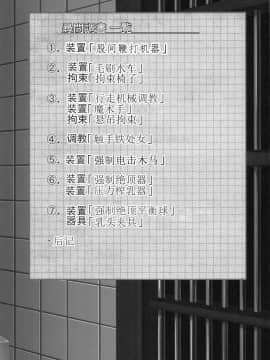 拷問器具 一覧
①. 装置「股间鞭打机器」
②. 装置「毛刷水车」
拘束「拘束椅子」
③. 装置「行走机械调教」
装置「魔术手」
拘束「悬吊拘束」
④. 调教「触手铁处女」
⑤. 装置「强制电击木马」
⑥. 装置「强制绝顶器」
装置「压力榨乳器」
⑦. 装置「强制绝顶平衡球」
器具「乳头夹具」
·后记